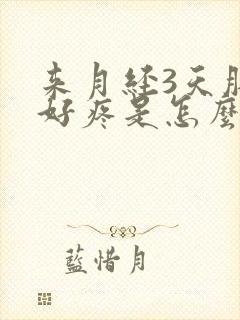 来月経3天
好疼是怎麼
藍惜月